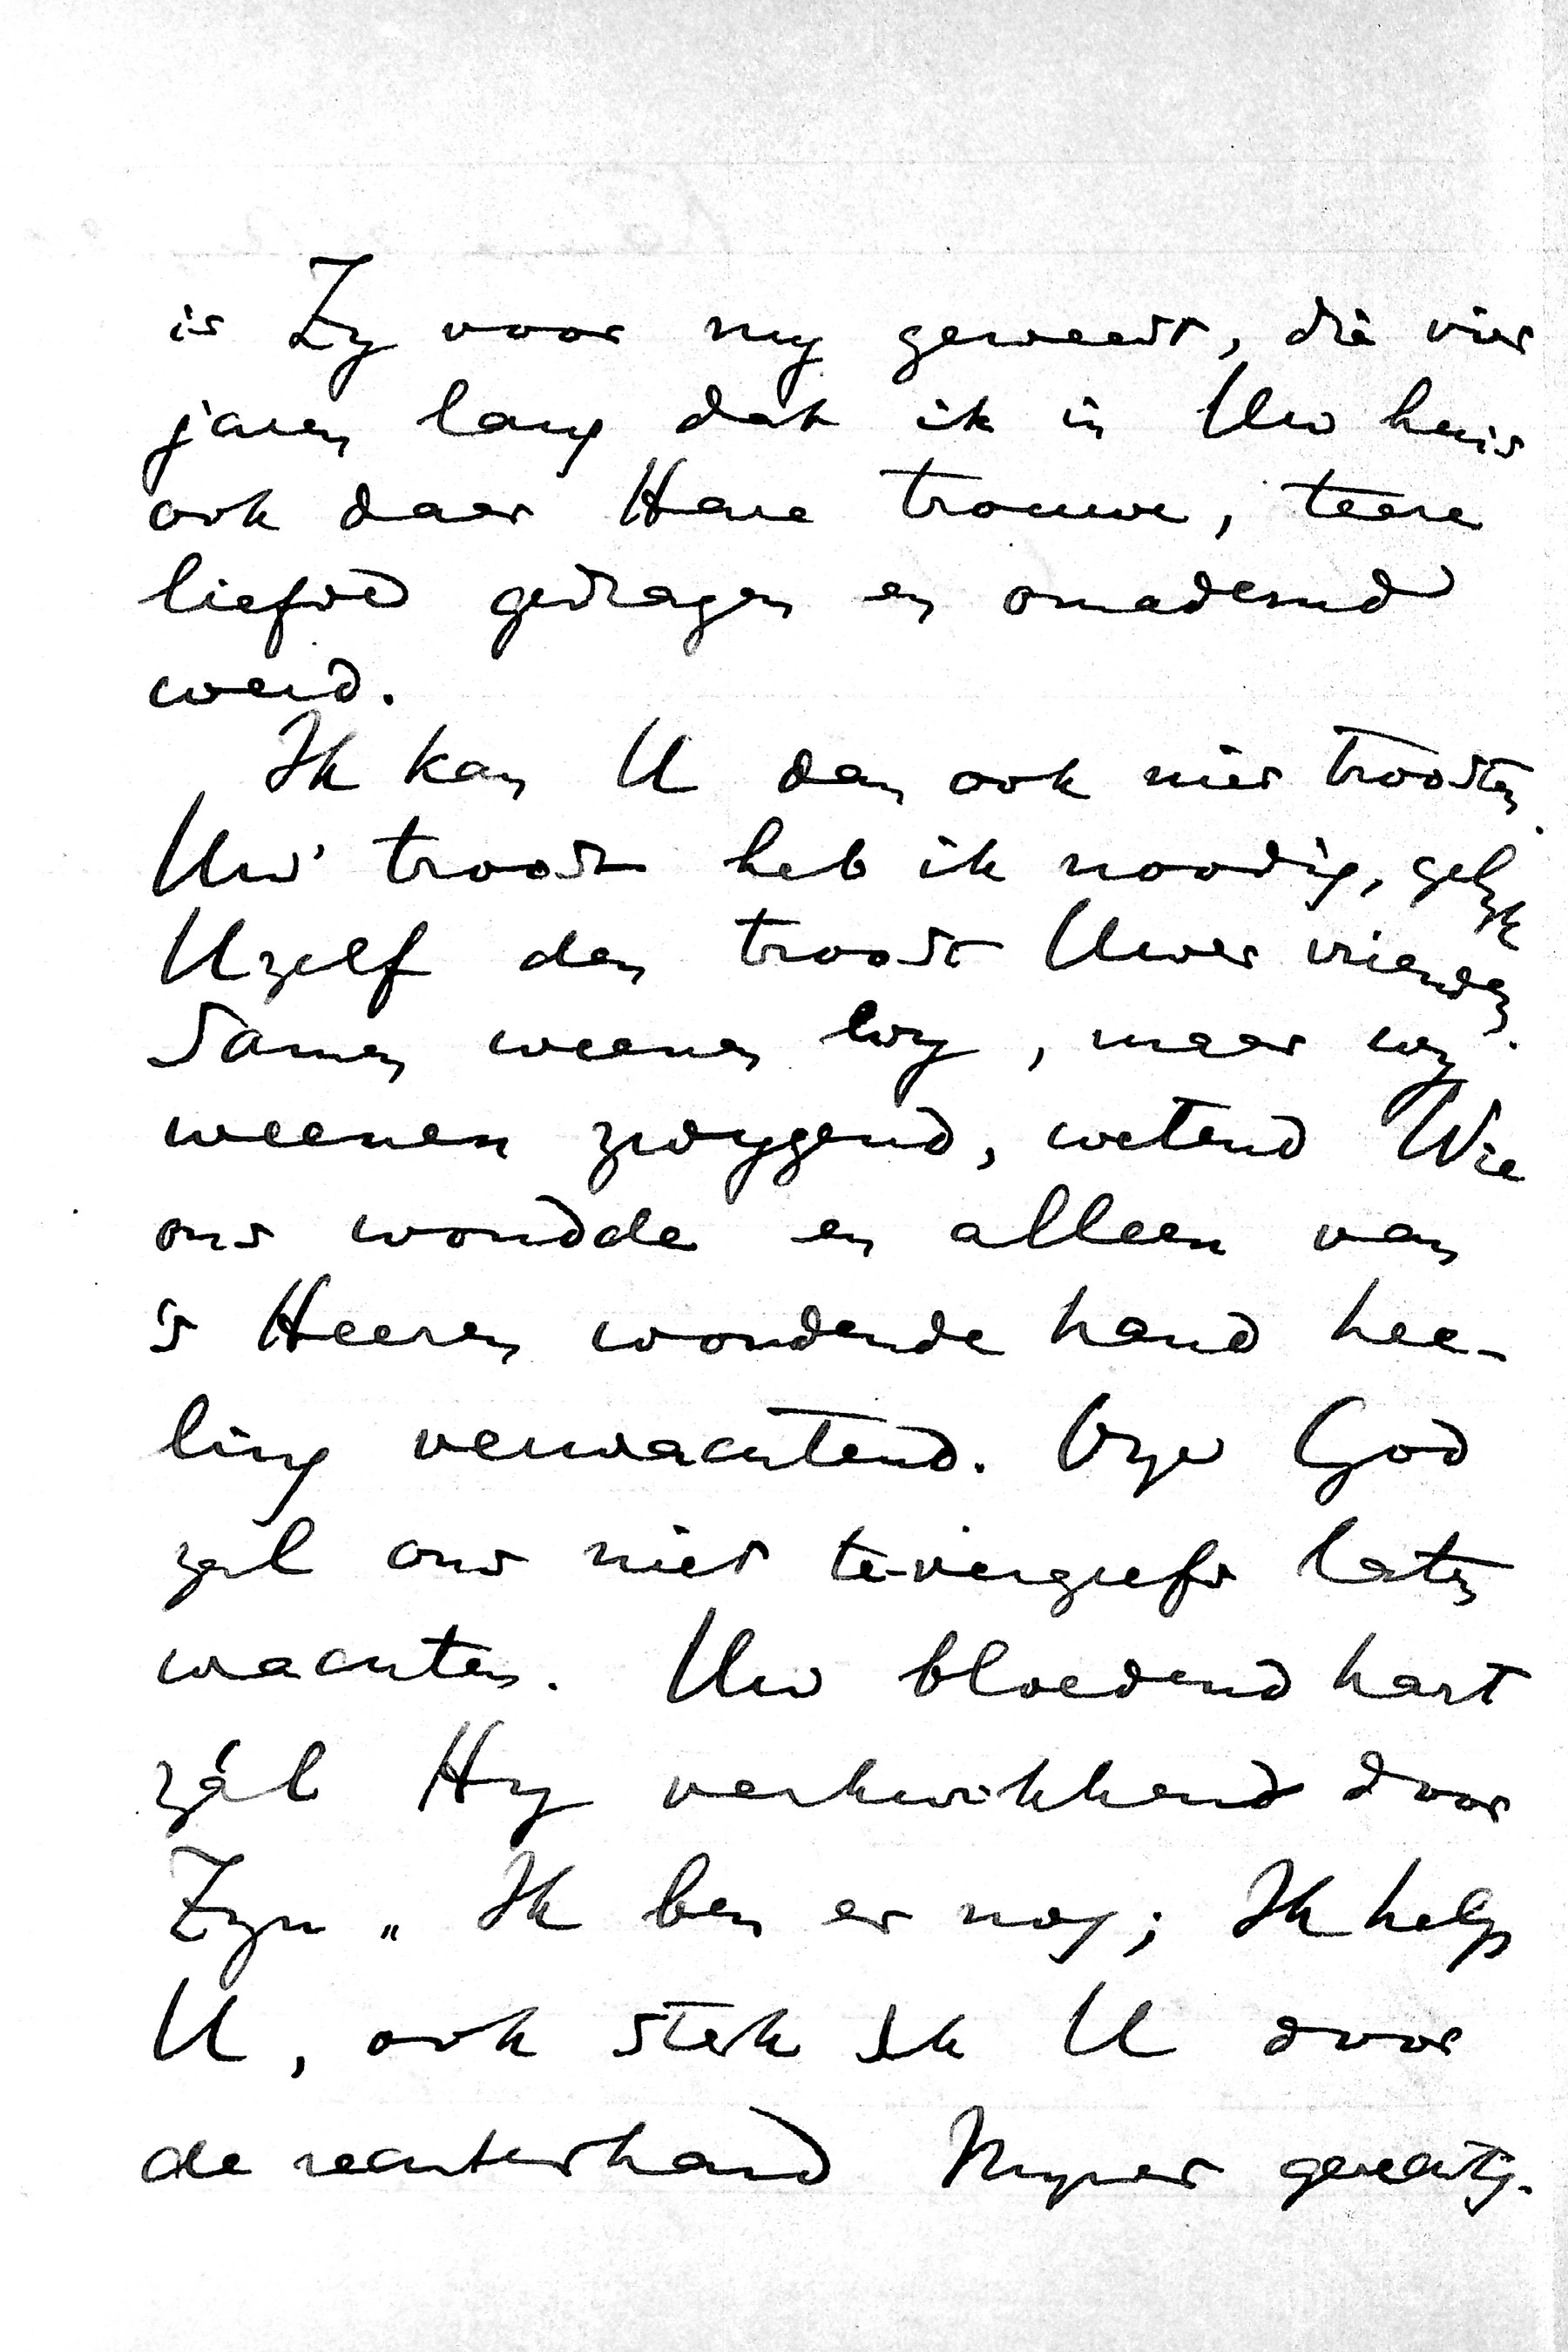 is Zy voor my geweest, die vier
jaren lang dat ik in Uw huis
ook daar Hare trouwe, teere
liefde gedragen en omademd
werd.
Ik kan U dan ook niet troosten.
Uw' troost heb ik noodig, gelyk
Uzelf den troost Uwer vrienden.
Samen weenen wy, maar wy
weenen zwygend, wetend Wie
ons wondde en alleen van
's Heeren wondende hand hee-
ling verwachtend. Onze God
zal ons niet te-vergeefs laten
wachten. Uw bloedend hart
zál Hy verkwikkend door
Zyn „Ik ben er nog; Ik help
U, ook sterk Ik U door
de rechterhand Myner gerechtig-